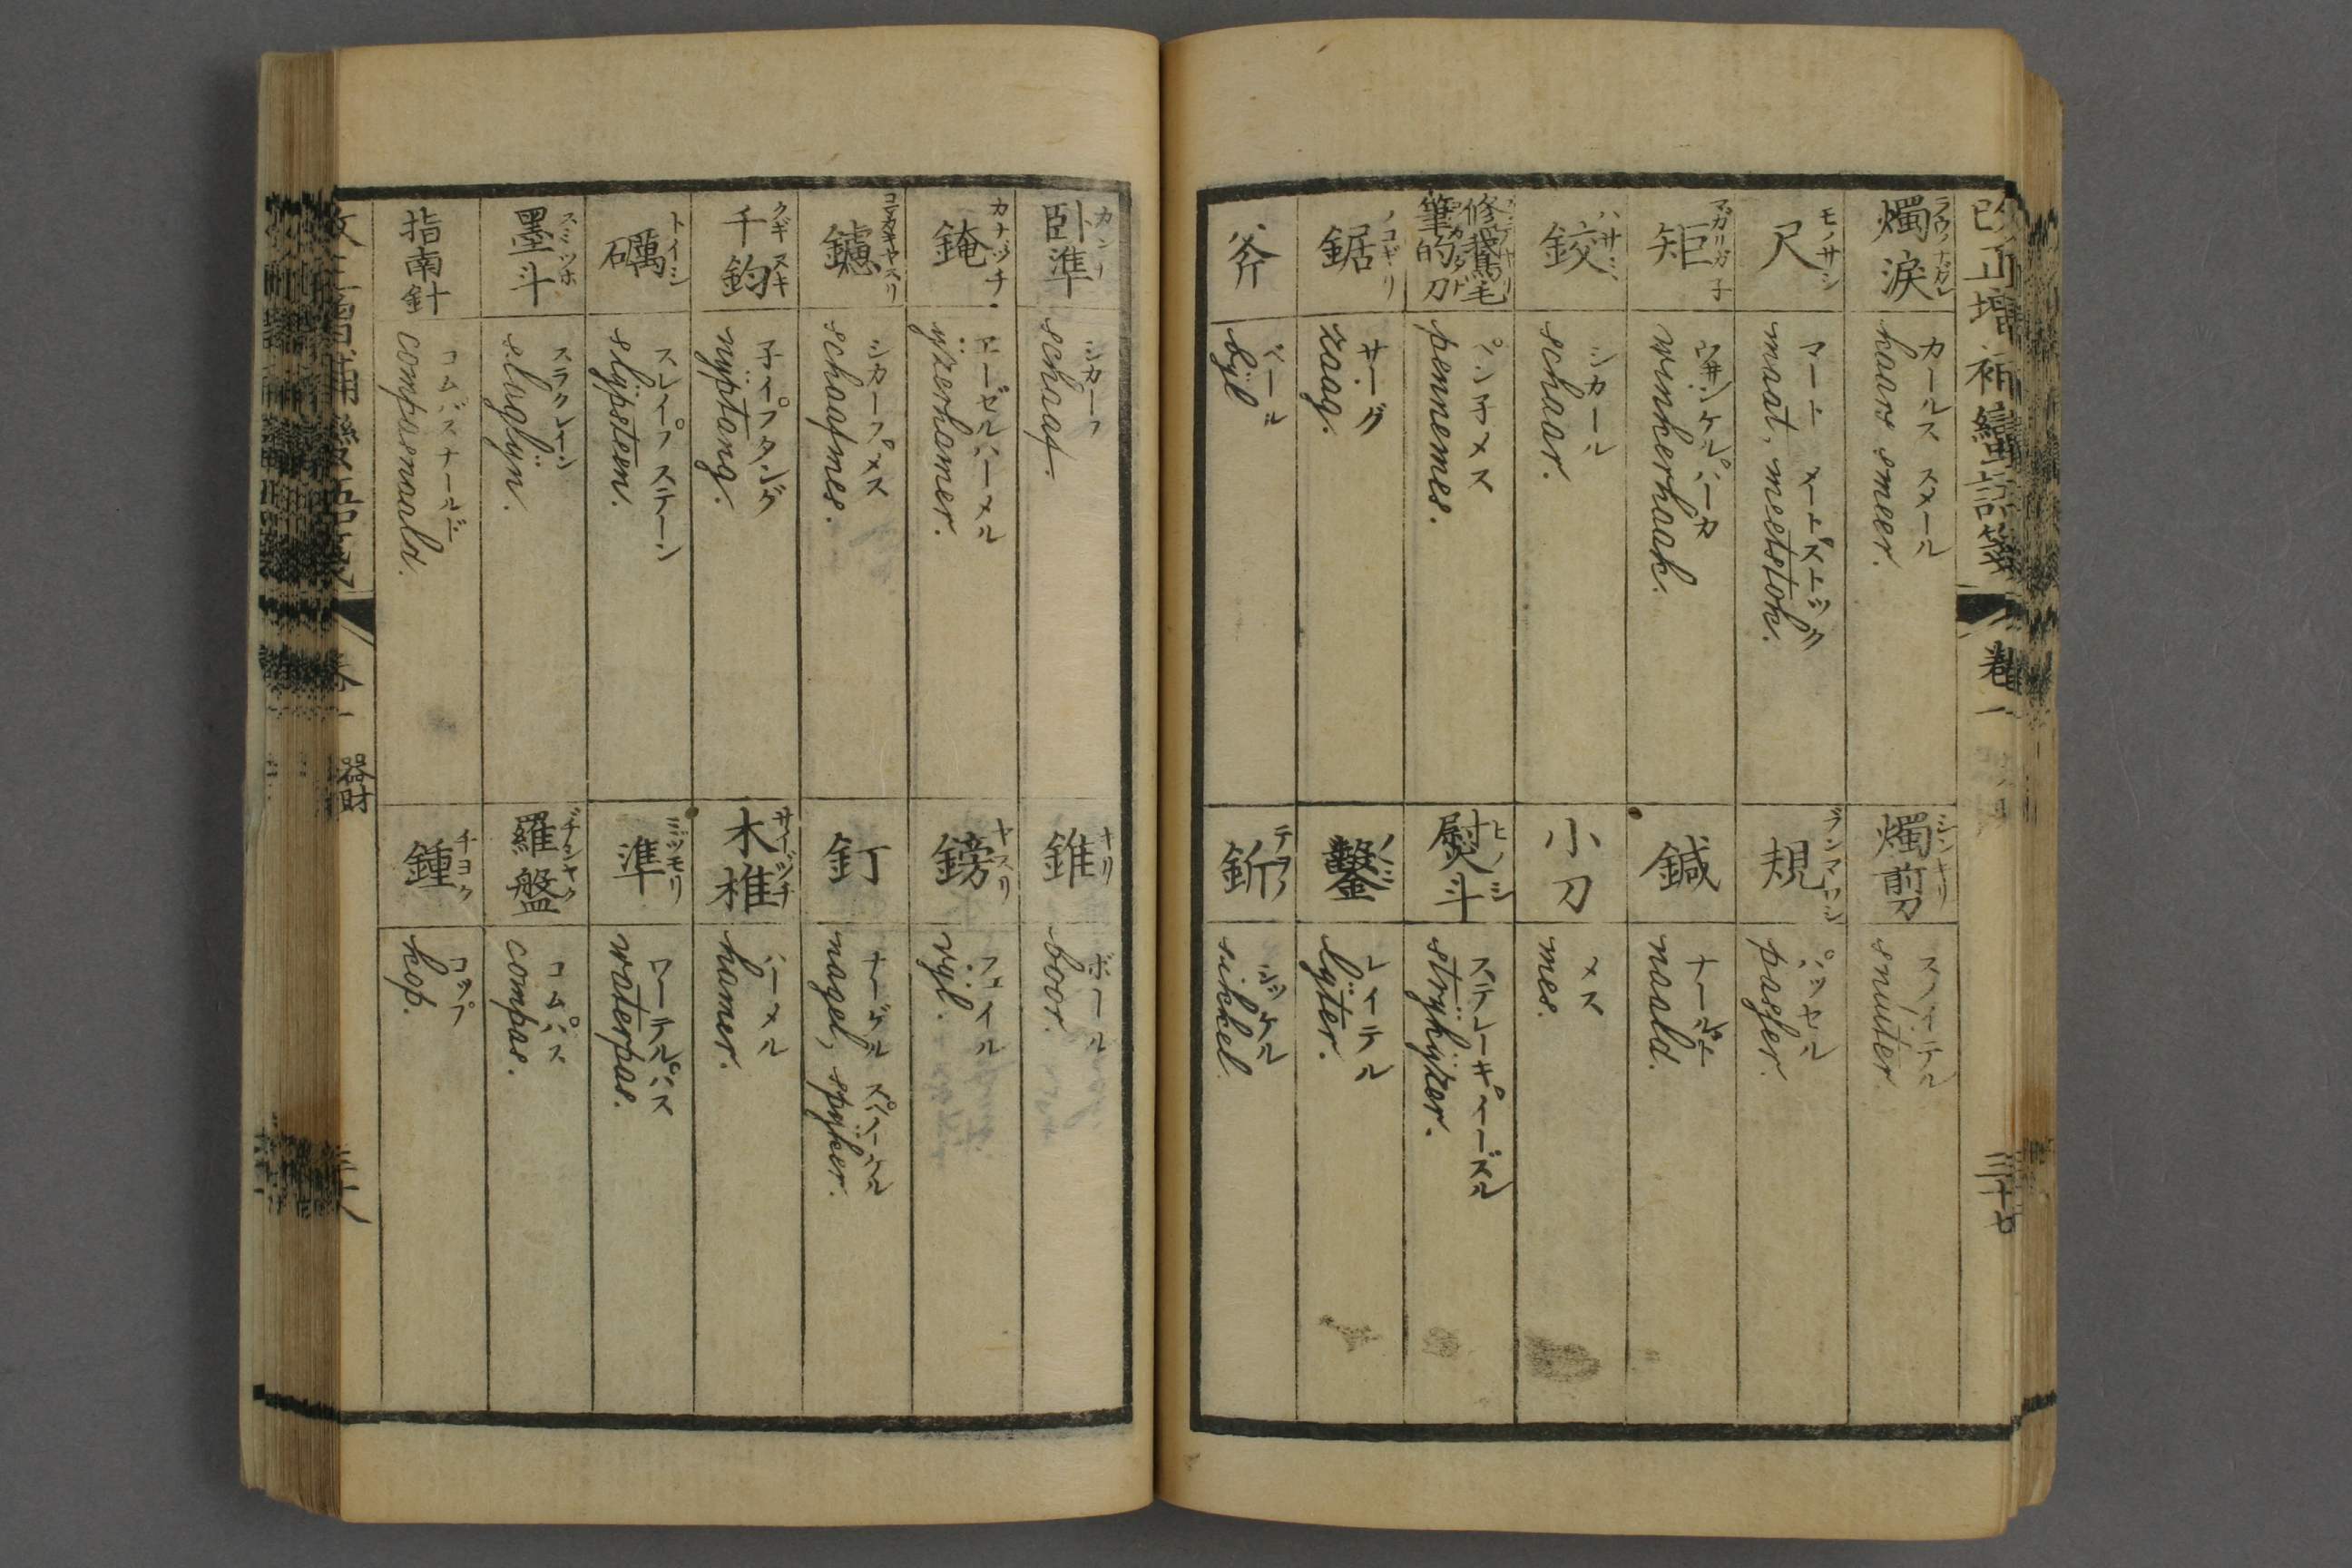 改正増補蠻語箋 卷一 三十七
燭淚 ラウノナガレ
カールス スメール
kaars smeer.
尺 モノサシ
マート メートストック
maat, meetstok.
矩 マガリガ子
ウ井ンケルハーカ
winkerhaak.
鉸 ハサミ
シカール
schaar.
修鵞毛筆的刀
ペン子メス
pennemes.
鋸 ノコギリ
サーグ
zaag.
斧
ベール
bÿl
燭剪 シンキリ
スノイテル
snuiter
規 ブンマワシ
パッセル
passer.
鍼
ナールド
naald.
小刀
メス
mes.
熨斗 ヒノシ
ステレーキイーズル
strÿkÿzer.
鑿 ノミ
レイテル
bÿter.
釿 テヲノ
シッケル
sikkel
臥準 カンナ
シカーフ
schaaf.
錀 カナヅチ
エーゼルハーメル
ÿzerhamer.
鑢 コマカキヤスリ
シカーフメス
schaafmes.
千鈞 クギヌキ
子イプタング
nÿptang.
礪 トイシ
スレイプステーン
slÿpsteen.
墨斗 スミツホ
スラクレイン
slaglÿn.
指南針
コムパスナールド
compasnaald.
錐 キリ
ボール
boor.
鎊 ヤスリ
フェイル
vÿl.
釘
ナーゲル スペイケル
nagel, spÿker.
木椎 サイヅチ
ハーメル
hamer.
準 ミヅモリ
ワーテルパス
waterpas.
羅盤 ヂシャク
コムパス
compas.
鍾 チヨク
コップ
kop.
卷一 器財